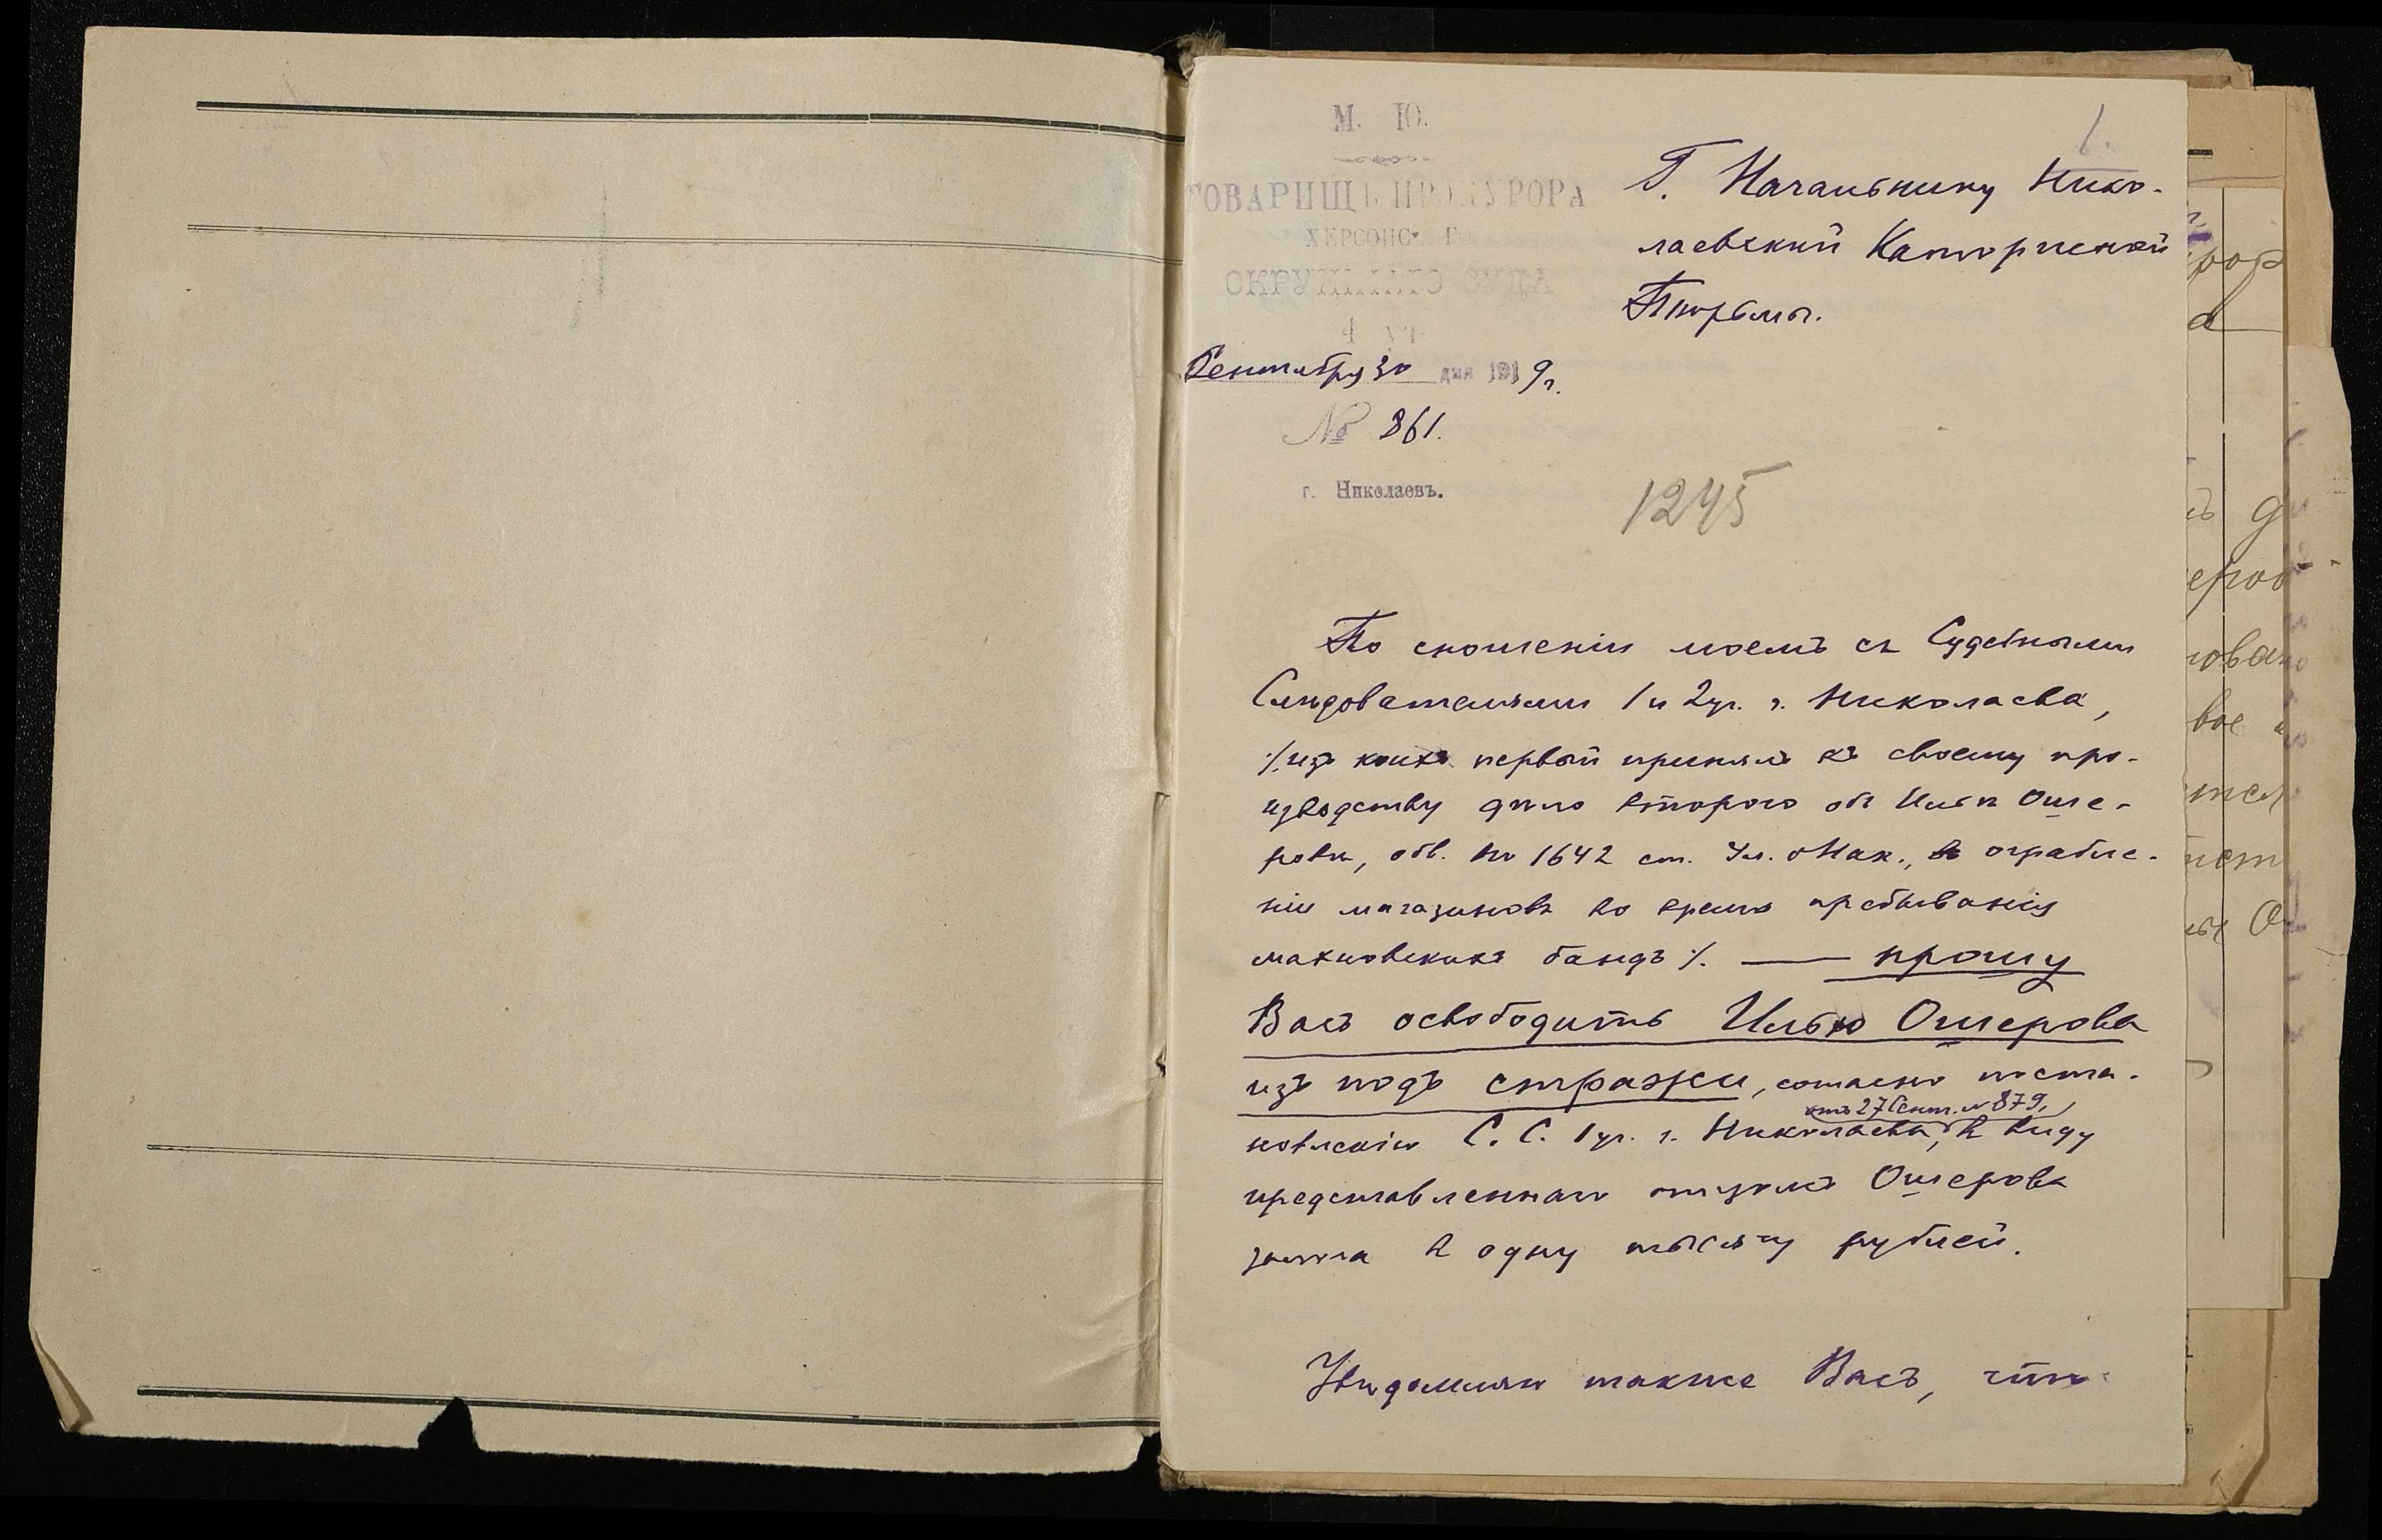 1.
М. Ю.
ТОВАРИЩЪ ПРОКУРОРА
ХЕРСОНСК. Г.
ОКРУЖНАГО СУДА
4 уч.
Сентября 30 дня 1919 г.
№ 861.
г. Николаевъ.
Г. Начальнику Нико-
лаевской Каторжной
Тюрьмы.
1245
По сношеніи моемъ съ Судебными
Слѣдователями 1 и 2 уч. г. Николаева,
/. изъ коихъ первый принялъ къ своему про-
изводству дѣло второго объ Ильѣ Оше-
ровѣ, обв. по 1642 ст. Ул. о Нак., въ ограбле-
ніи магазиновъ во время пребыванія
махновскихъ бандъ /. — прошу
Васъ освободить Илью Ошерова
изъ подъ стражи, согласно поста-
отъ 27 Сент. № 879,
новленію С. С. 1 уч. г. Николаева, въ виду
представленнаго отцомъ Ошерова
залога въ одну тысячу рублей.
Увѣдомляю также Васъ, что